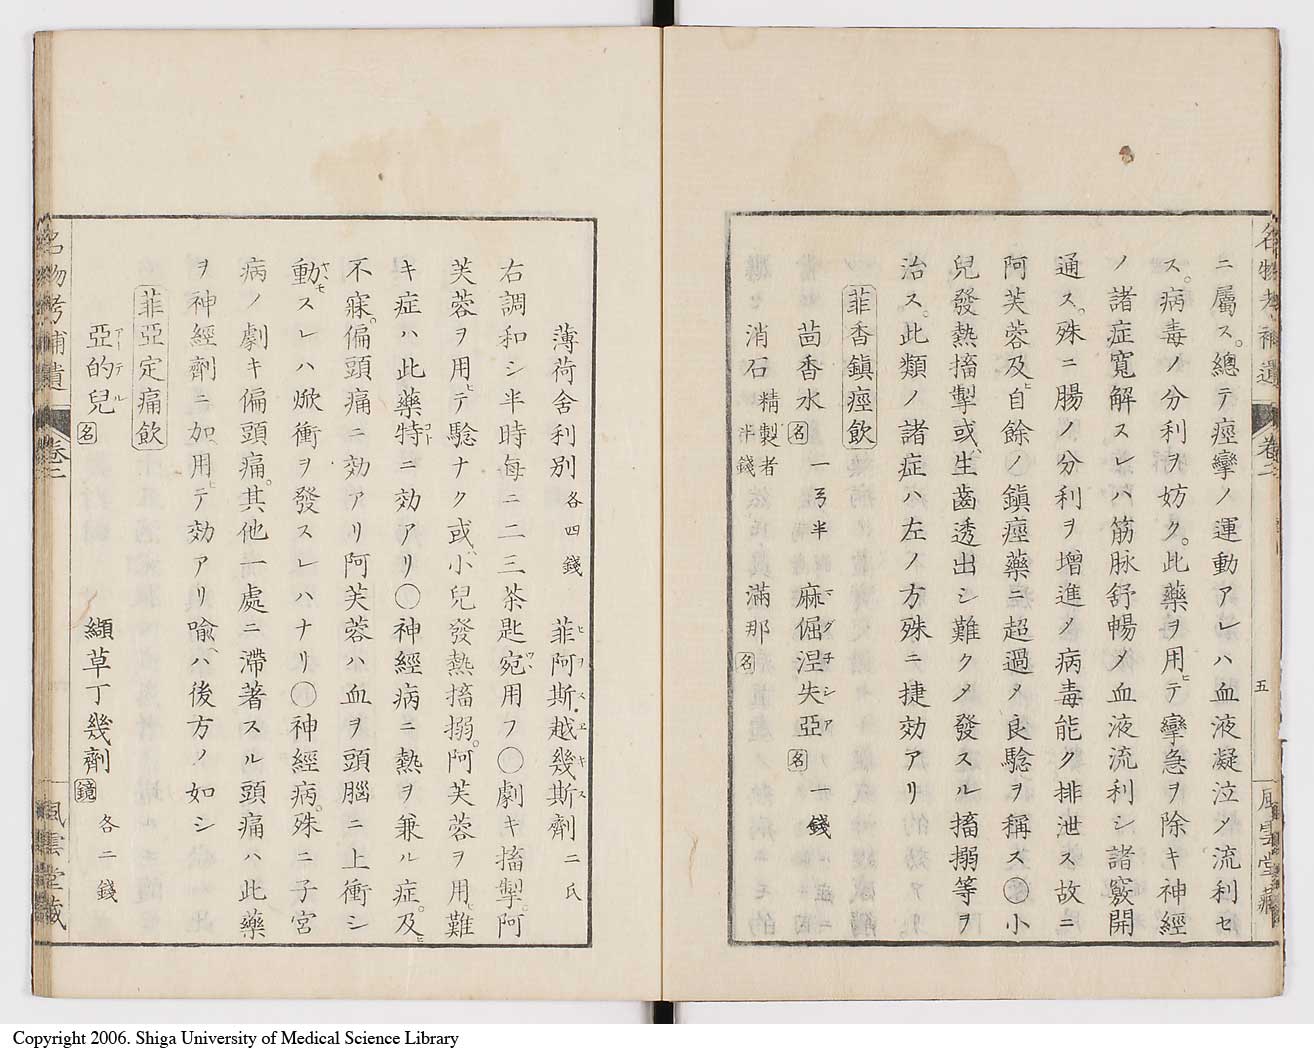 ニ屬ス。總テ痙攣ノ運動アレハ血液凝泣乄流利セ
ス。病毒ノ分利ヲ妨ク。此藥ヲ用テ攣急ヲ除キ神經
ノ諸症寬解スレハ筋脉舒暢乄血液流利シ諸竅開
通ス。殊ニ腸ノ分利ヲ增進乄病毒能ク排泄ス故ニ
阿芙蓉及ヒ自餘ノ鎮痙藥ニ超過乄良驗ヲ稱ス〇小
兒發熱搐掣或ハ生齒透出シ難ク乄發スル搐搦等ヲ
治ス。此類ノ諸症ハ左ノ方殊ニ捷効アリ
菲香鎮痙飲
茴香水 名 一弓半 麻倔涅失亞 名 一錢
消石 精製者半錢 滿那 名
名物考補遺 卷二 五 風雲堂藏
薄荷舍利別 各四錢 菲阿斯越幾斯劑 二氏
右調和シ半時每ニ二三茶匙宛用フ〇劇キ搐掣。阿
芙蓉ヲ用テ驗ナク或ハ小兒發熱搐搦。阿芙蓉ヲ用ヒ難
キ症ハ此藥特ニ効アリ〇神經病ニ熱ヲ兼ル症。及ヒ
不寐。偏頭痛ニ効アリ阿芙蓉ハ血ヲ頭腦ニ上衝シ
動スレハ焮衝ヲ發スレハナリ〇神經病。殊ニ子宮
病ノ劇キ偏頭痛。其他一處ニ滯著スル頭痛ハ此藥
ヲ神經劑ニ加ヘ用テ効アリ喻ヘハ後方ノ如シ
菲亞定痛飲
亞的兒 名 纈草丁幾劑 鏡 各二錢
名物考補遺 卷二 風雲堂藏
Copyright 2006. Shiga University of Medical Science Library